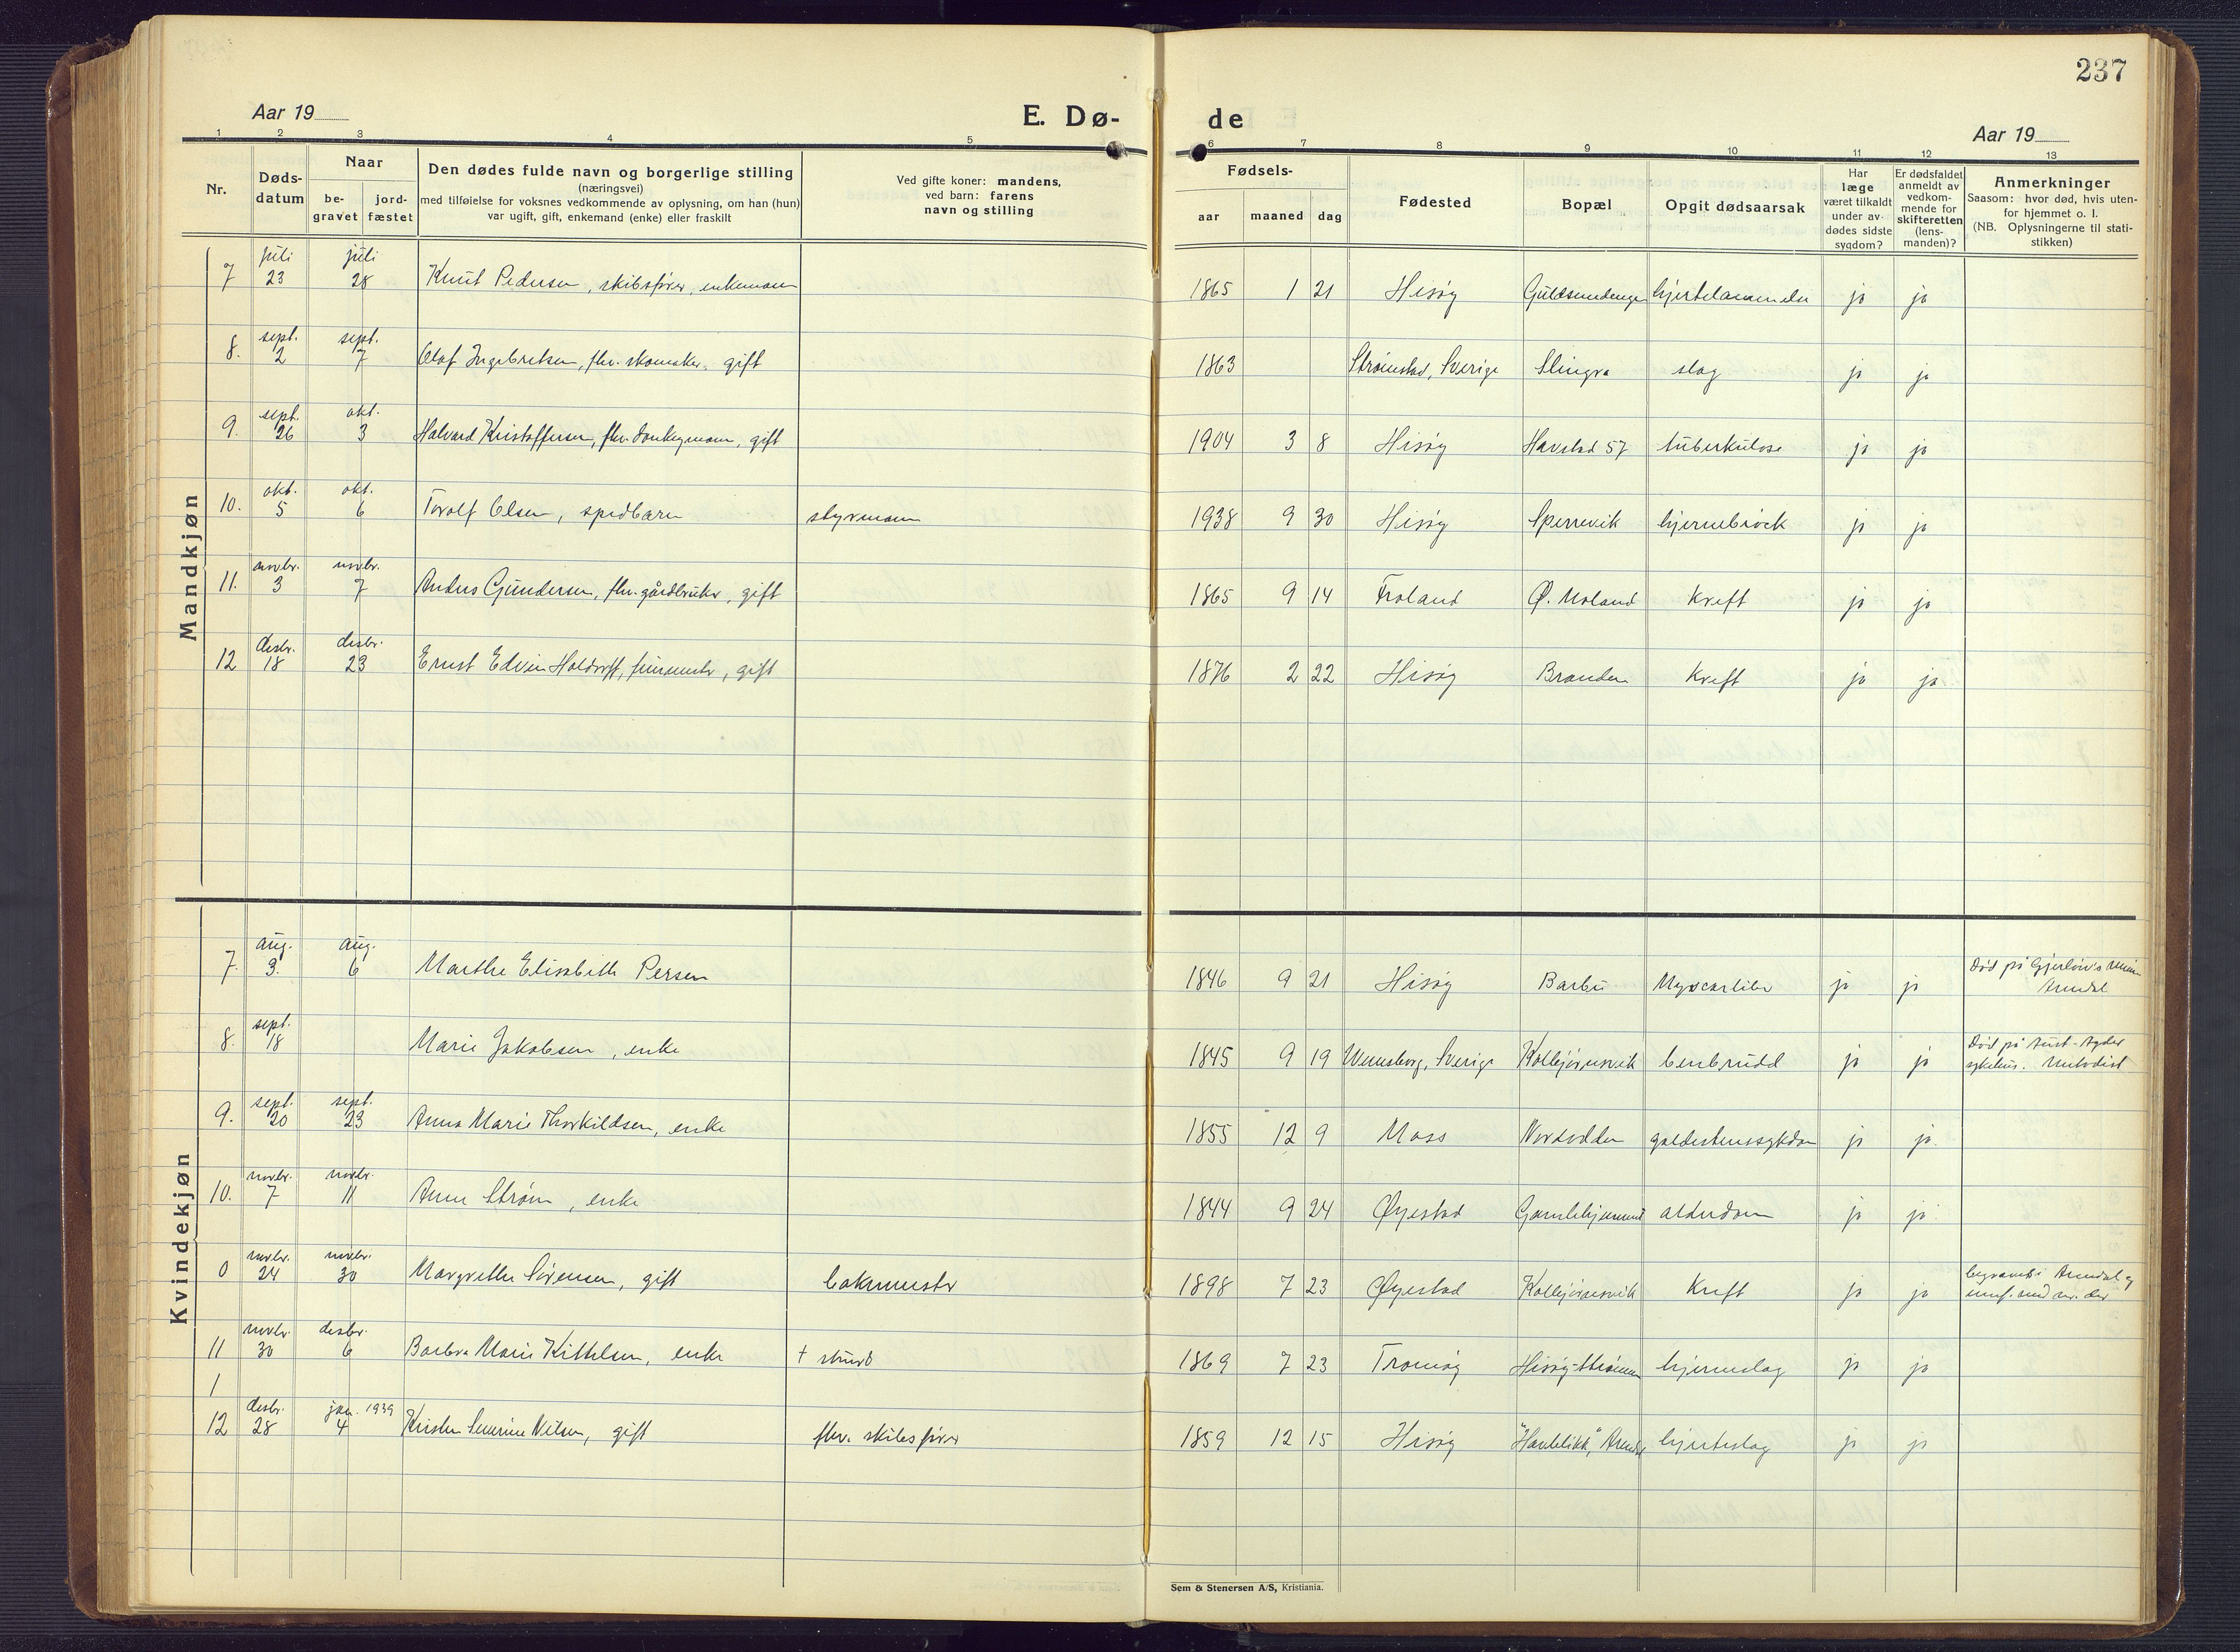 237
Aar 19
E. Dø-
de
Aar 19
1 2 3 4 5 6 7 8 9 10 11 12 13
Nr.
Døds-
datum
Naar
be-
gravet
jord-
fæstet
Den dødes fulde navn og borgerlige stilling
(næringsvei)
med tilføielse for voksnes vedkommende av oplysning, om han (hun)
var ugift, gift, enkemand (enke) eller fraskilt
Ved gifte koner: mandens,
ved barn: farens
navn og stilling
Fødsels-
aar maaned dag
Fødested
Bopæl
Opgit dødsaarsak
Har
læge
været tilkaldt
under av-
dødes sidste
sygdom?
Er dødsfaldet
anmeldt av
vedkom-
mende for
skifteretten
(lens-
manden)?
Anmerkninger
Saasom: hvor død, hvis uten-
for hjemmet o. l.
(NB. Oplysningerne til stati-
stikken)
Mandkjøn
juli juli
7 23 28 Knut Pedersen, skibsfører, enkemann 1865 1 21 Hisøy ja ja
sept. sept.
8. 2 7 Olaf Ingebretsen, fhv. skomaker, gift 1863 Strömstad, Sverige Slingra slag ja ja
sept. okt.
9. 26 3 Halvard Kristoffersen, fhv. donkeymann, gift 1904 3 8 Hisøy Havstad 57 tuberkulose ja ja
okt. okt.
10. 5 6 Torolf Olsen, spedbarn styrmann 1938 9 30 Hisøy Sperrevik hjernebrock ja ja
novbr. novbr.
11. 3 7 Anders Gundersen, fhv. gårdbruker, gift 1865 9 14 Froland Ø. Moland Kreft ja ja
desbr. desbr.
12 18 23 Ernst Edvin Holdorff, gift 1876 2 22 Hisøy Branden Kreft ja ja
Kvindekjøn
aug. aug.
7. 3. 6 Marthe Elisabeth Persen 1846 9 21 Hisøy Barbu ja ja Død på Gjerløw's Minne
Arendal
sept.
8. 18 Marie Jakobsen, enke 1845 9 19 Wenersborg, Sverige Kolbjørnsvik benbrudd ja ja Død på Aust-Agder
sykehus. Metodist
sept. sept.
9. 20 23 Anna Marie Thorkildsen, enke 1855 12 9 Moss Nordodden galdestenssykdom ja ja
novbr. novbr.
10. 7 11 Anne Strøm, enke 1844 9 24 Øyestad Gamlehjemmet alderdom ja ja
novbr. novbr.
0 24 30 Margrethe Sørensen, gift bakermester 1898 7 23 Øyestad Kolbjørnsvik Kreft ja ja begravet i Arendal og
innf. med nr. der
novbr. desbr.
11 30 6 Barbra Marie Kittelsen, enke 1869 7 23 Tromøy Hisøy-Strømmen hjerneslag ja ja
1
desbr. jan. 1939
12 28 4 Kristen Severine Nilsen, gift fhv. skibsfører 1859 12 15 Hisøy "Havblikk," Arendal hjerteslag ja ja
Sem & Stenersen A/S, Kristiania.